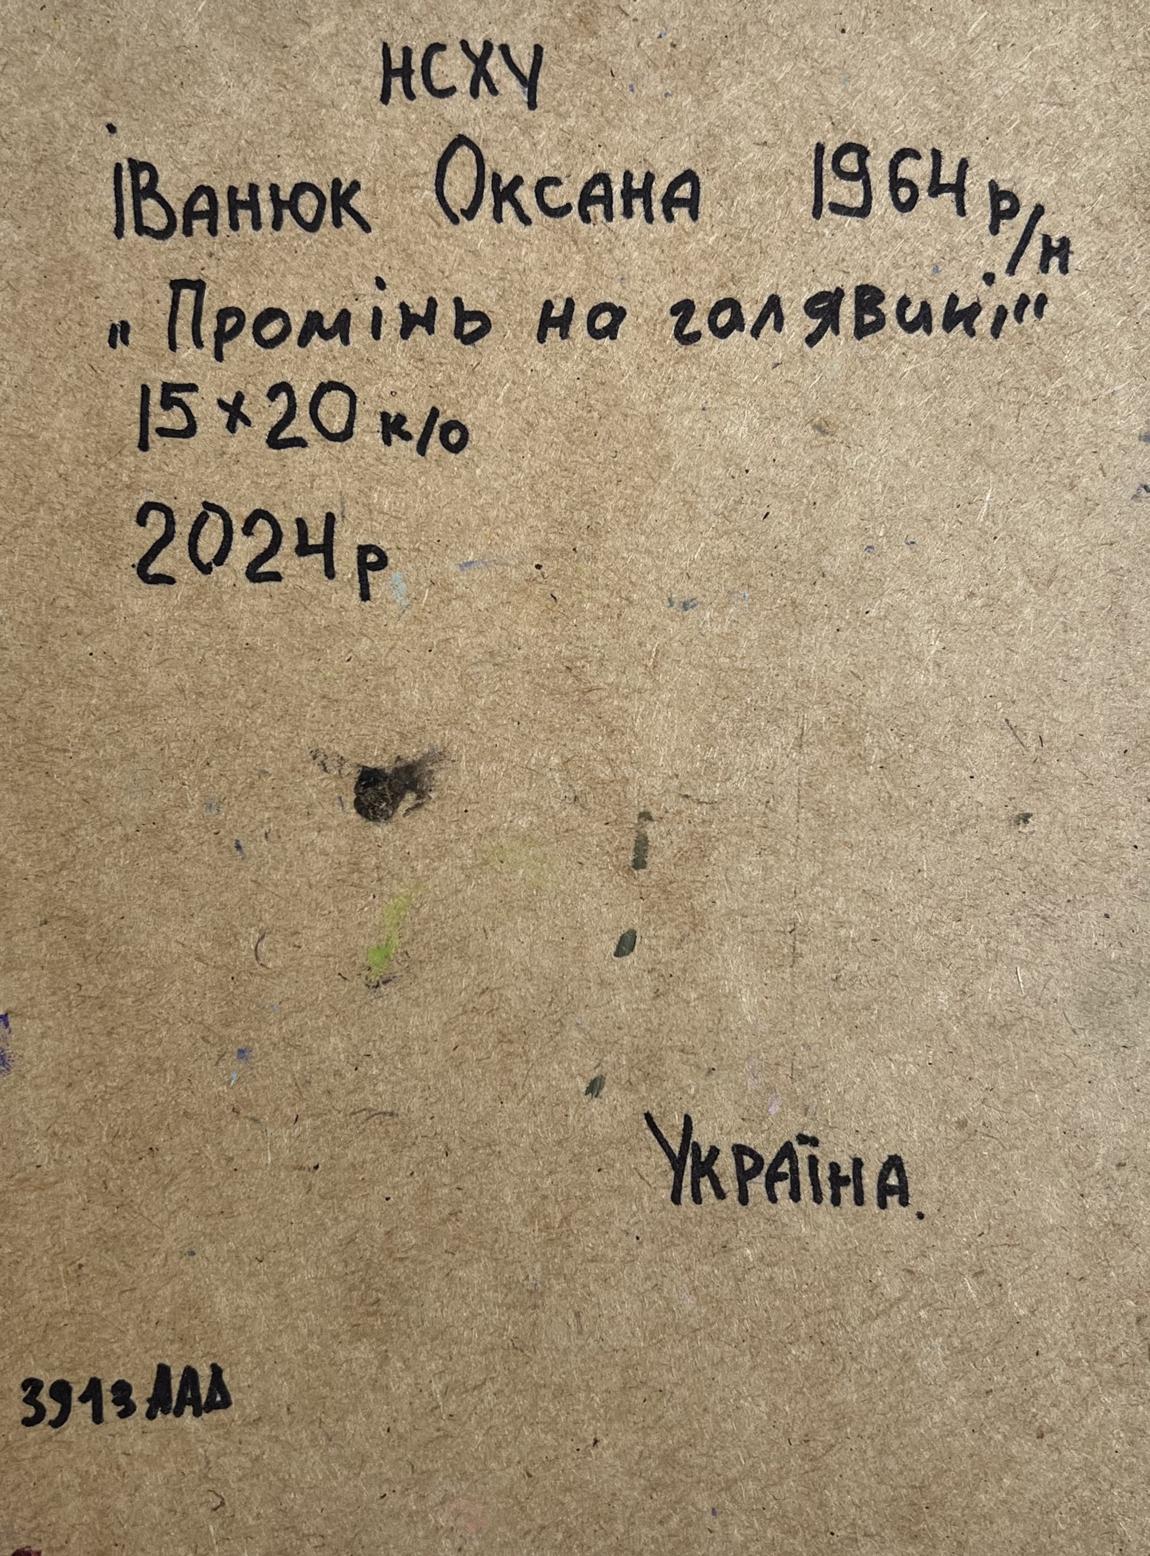 НСХУ
Іванюк Оксана 1964 р/н
„Промінь на галявині"
15×20 к/о
2024р
Україна.
3913ЛАД